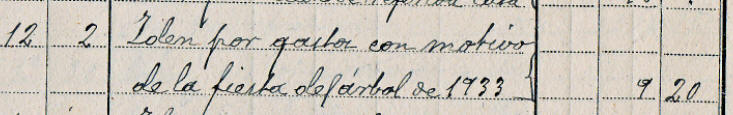 12 2 Idem por gastos con motivo
de la fiesta del árbol de 1933 9 20